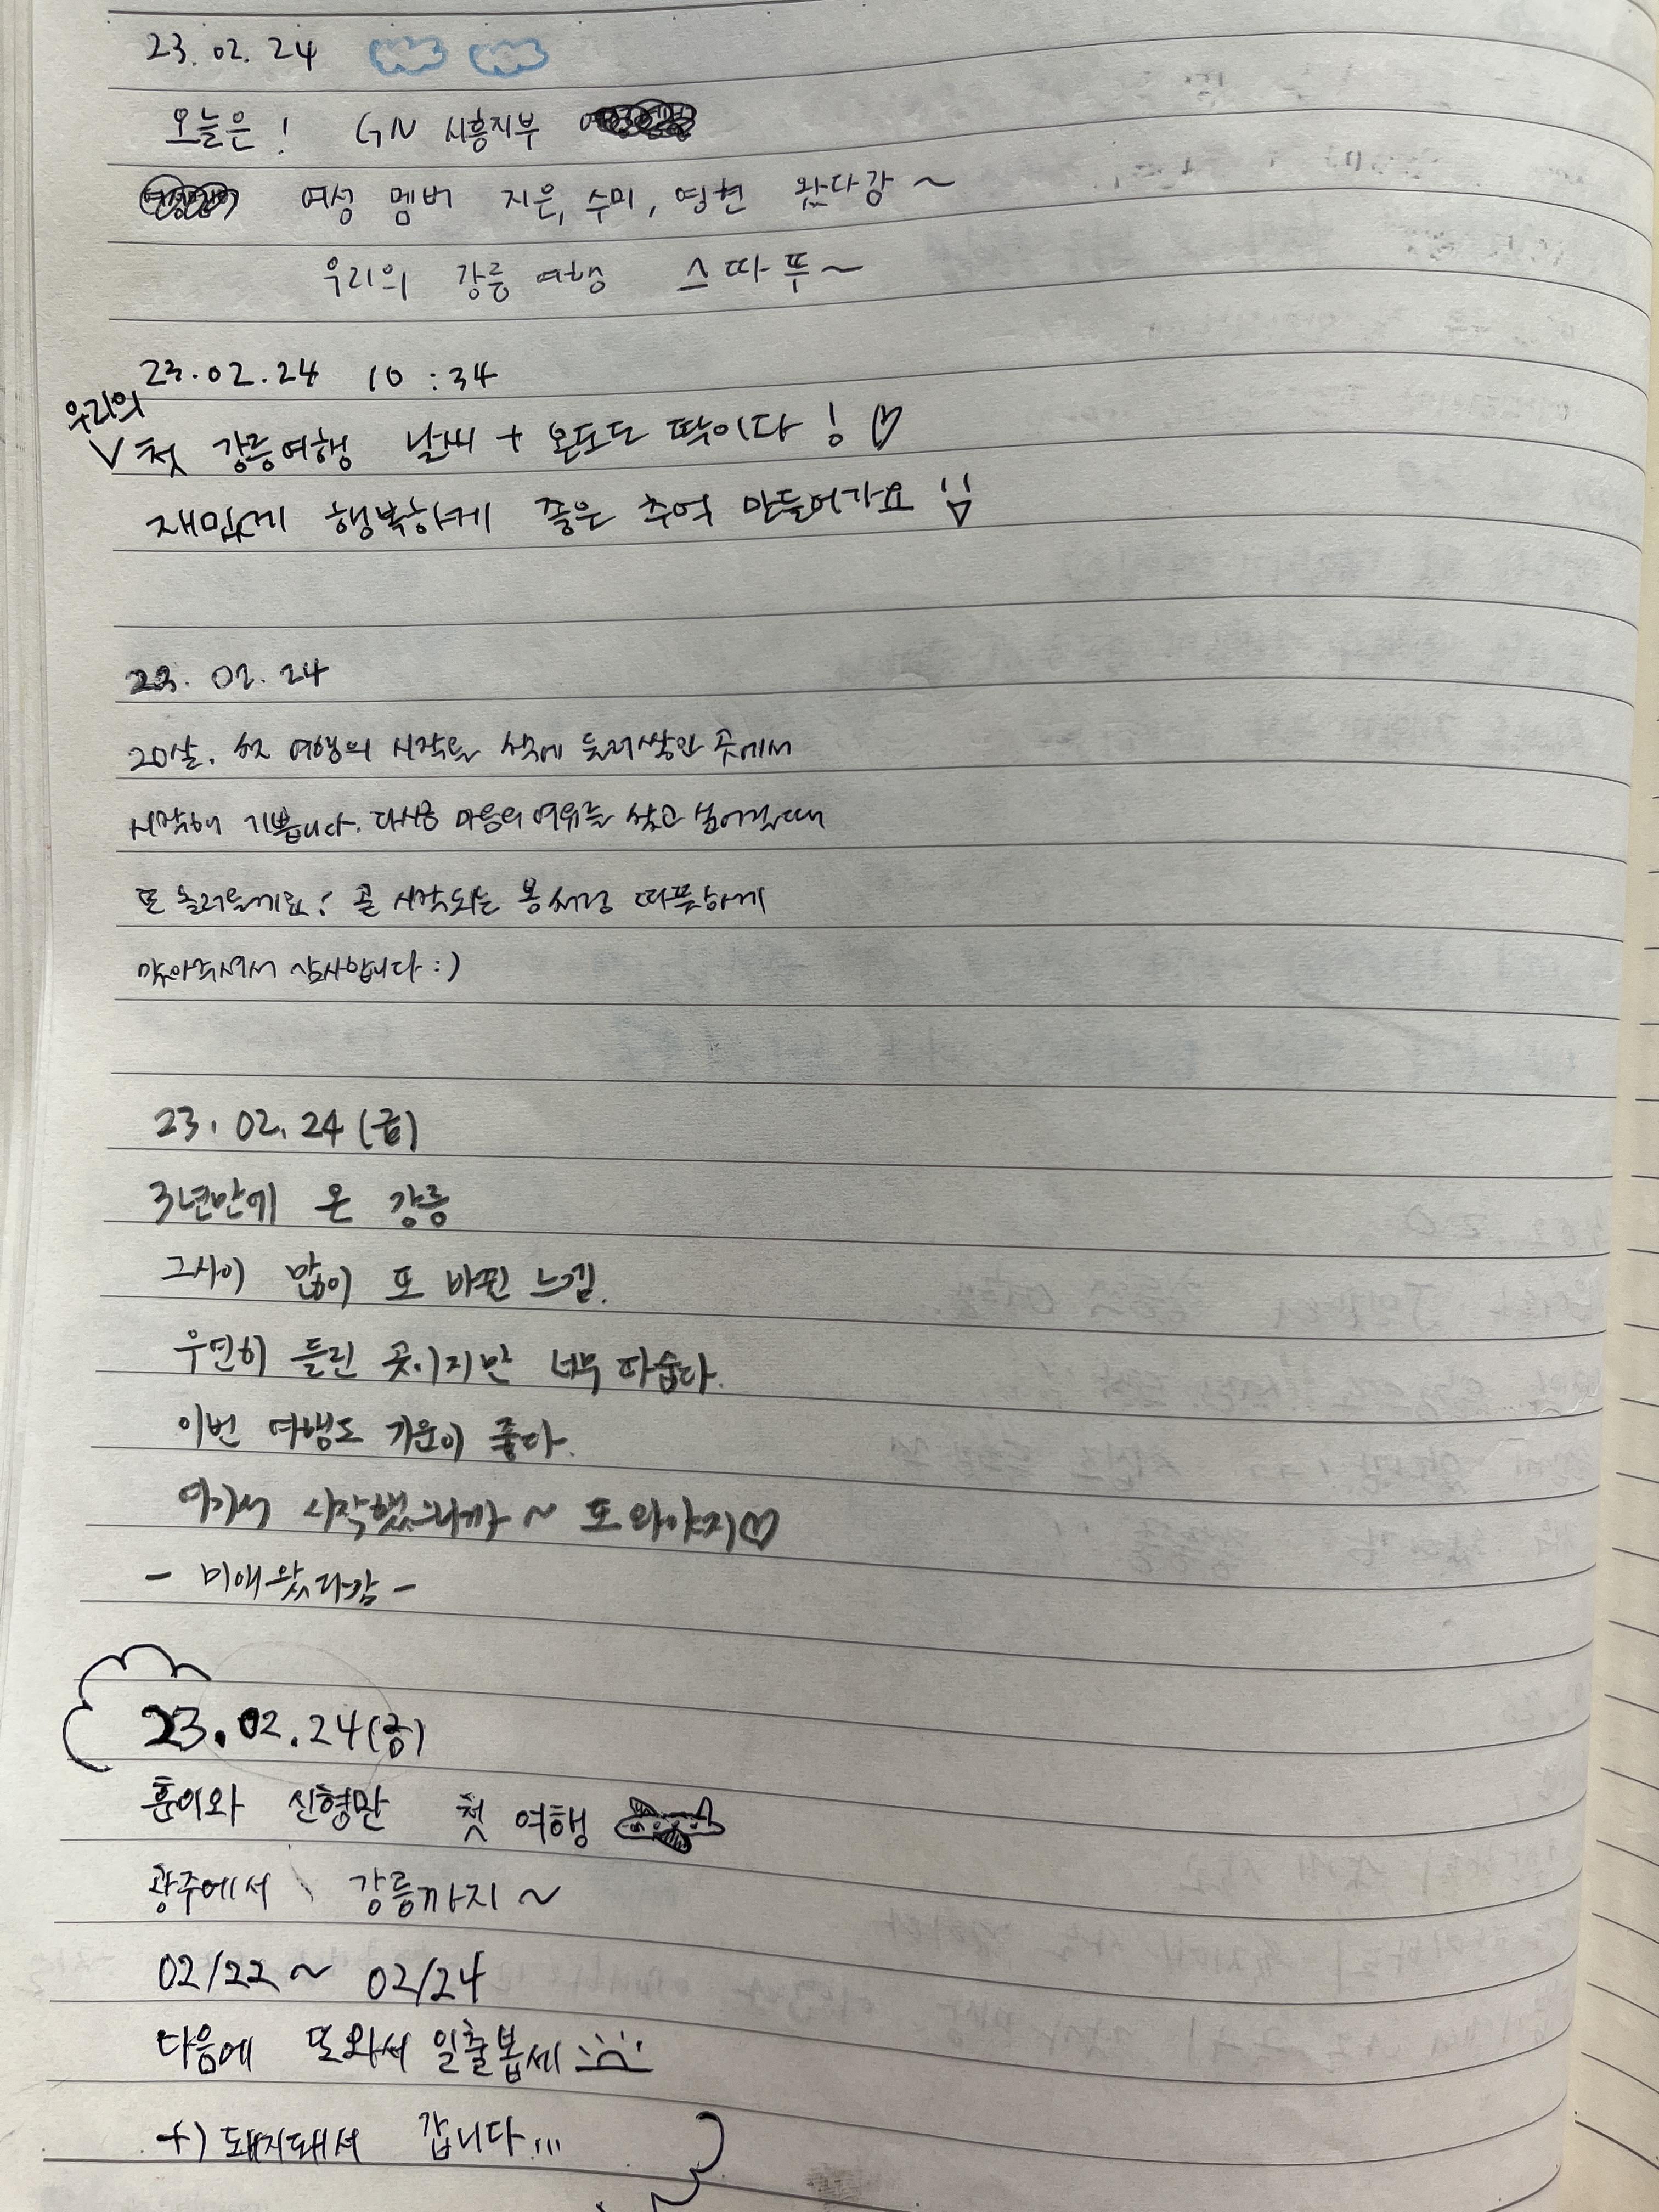 23. 02. 24
오늘은! GN 시흥지부
여성 멤버 지은, 수미, 영현 왔다강~
우리의 강릉 여행 스따뚜~
23.02.24 10:34
우리의
첫 강릉여행 날씨 + 온도도 딱이다! ♡
재밌게 행복하게 좋은 추억 만들어가요
23. 02. 24
20살, 첫 여행의 시작을 숲에 둘러쌓인 곳에서
시작해 기쁩니다. 다시금 마음의 여유를 찾고 싶어질때
또 놀러올게요! 곧 시작되는 봄처럼 따뜻하게
맞아주셔서 감사합니다 :)
23. 02. 24 (금)
3년만에 온 강릉
그사이 많이 또 바뀐 느낌.
우연히 들린 곳이지만 너무 다습다.
이번 여행도 기운이 좋다.
여기서 시작했으니까~ 또 와야지♡
- 미애왔다감 -
23.02.24(금)
훈이와 신형만 첫 여행
광주에서 강릉까지~
02/22 ~ 02/24
다음에 또와서 일출봅세
+) 돼지돼서 갑니다...